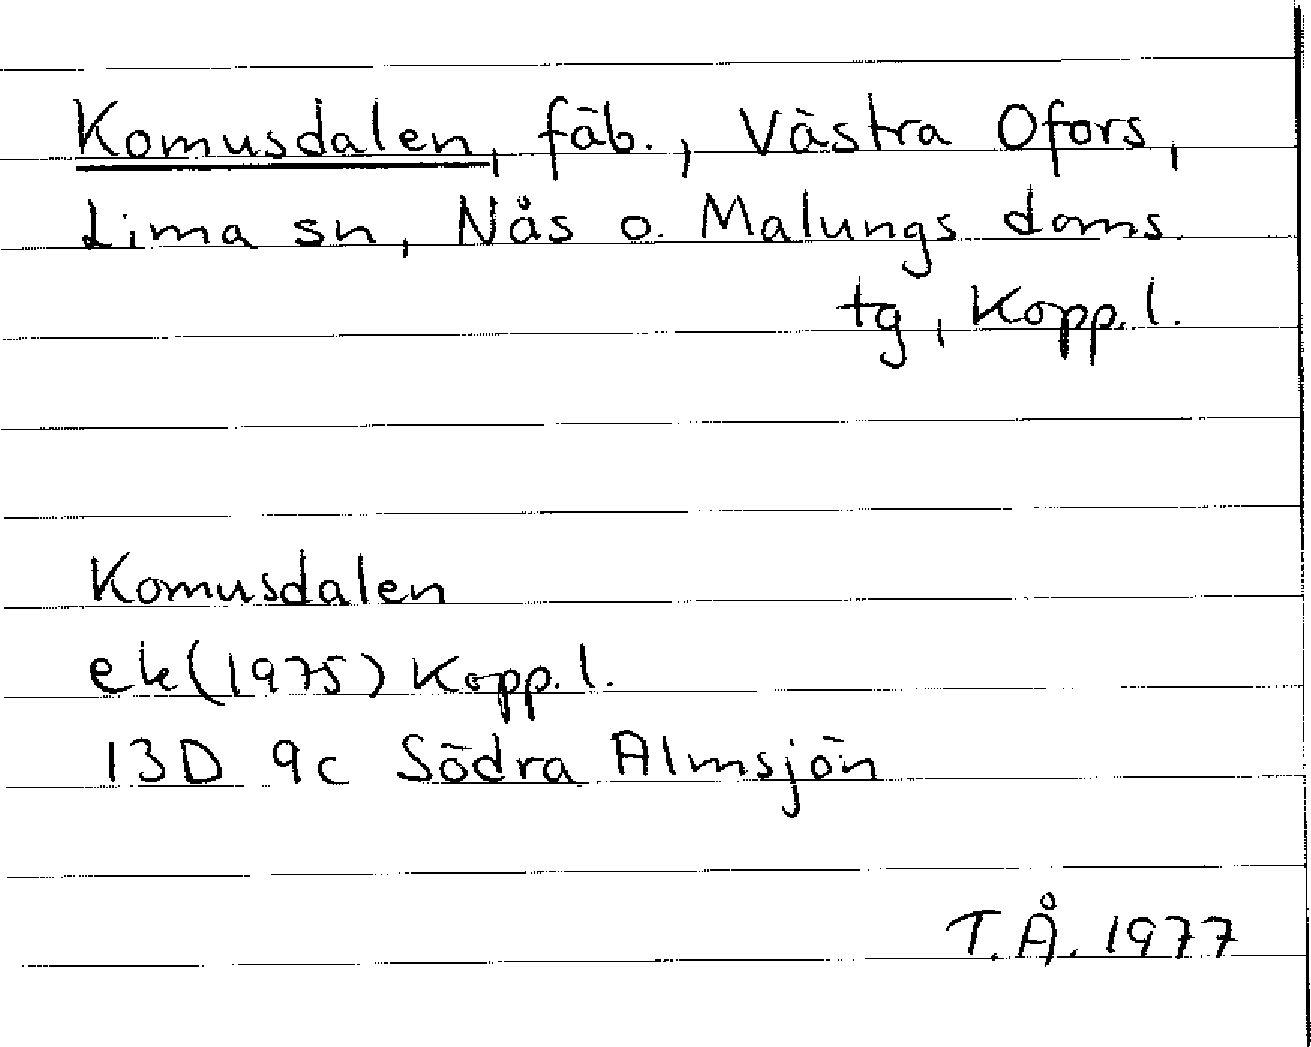 Komusdalen, fäb., Västra Ofors,
Lima sn, Nås o. Malungs doms.
tg, Kopp.l.
Komusdalen
ek(1975) Kopp.l.
13D 9c Södra Almsjön
T.Å. 1977